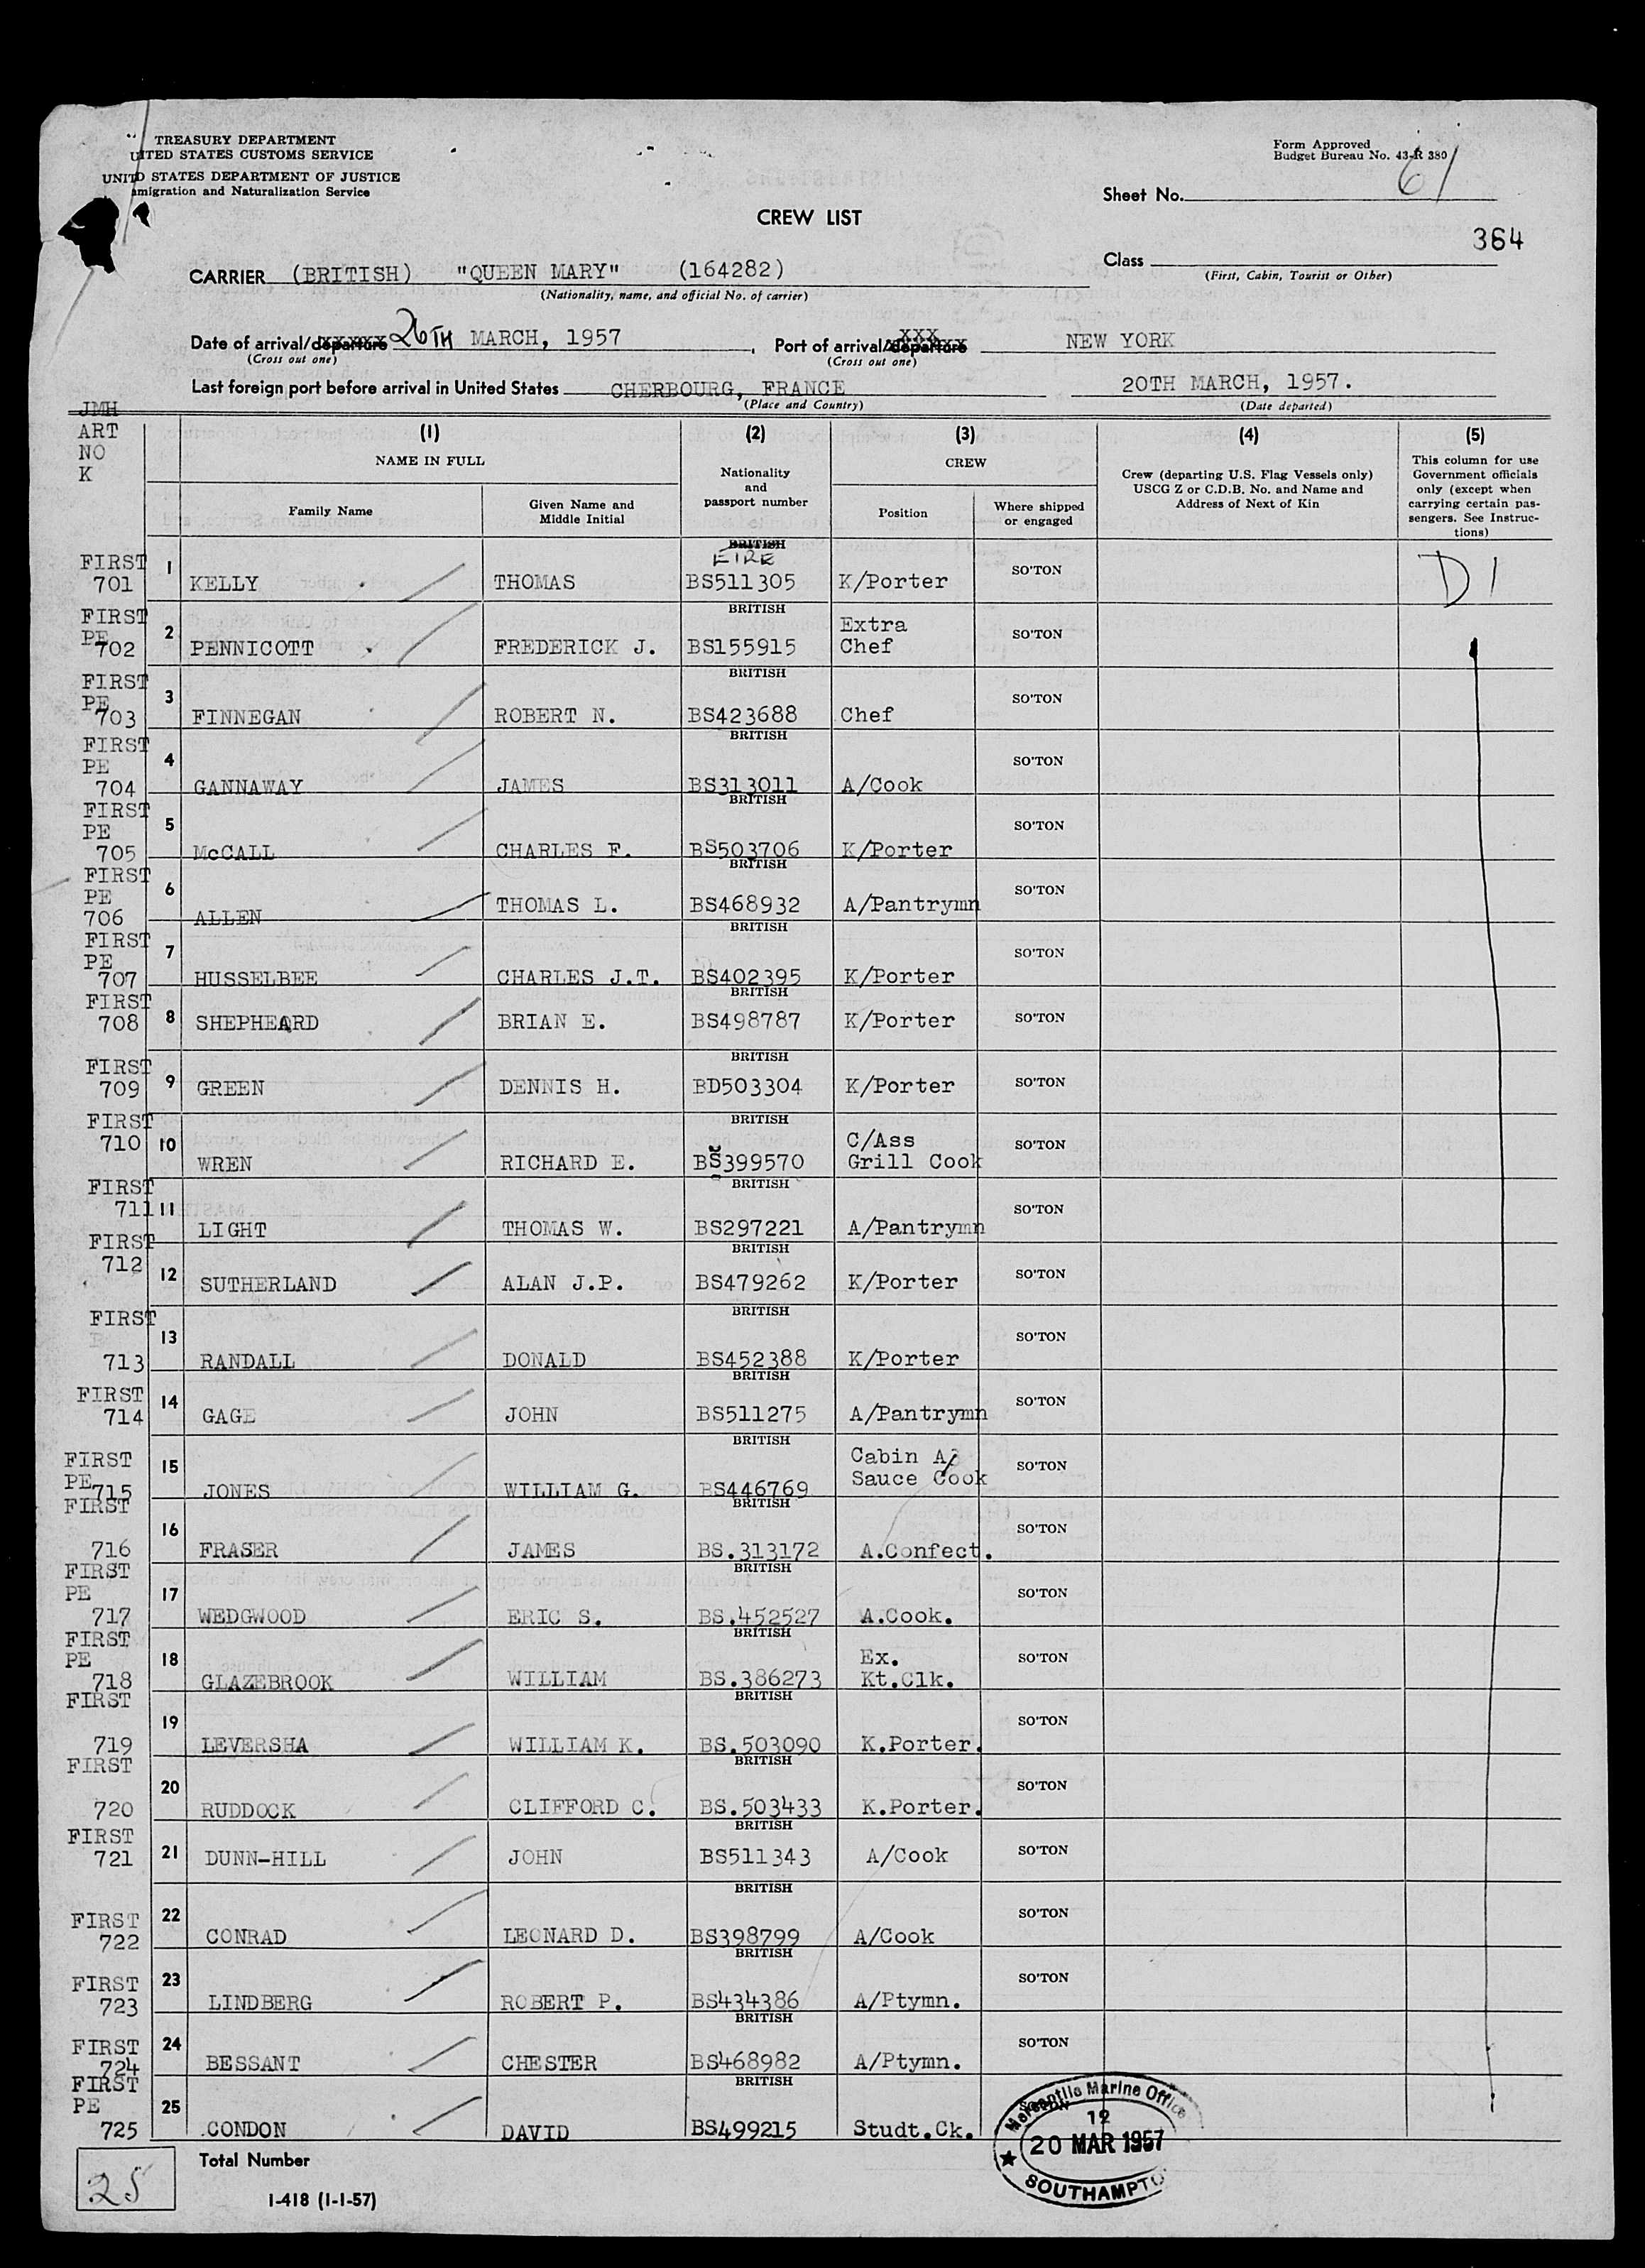 TREASURY DEPARTMENT
UITED STATES CUSTOMS SERVICE
UNITD STATES DEPARTMENT OF JUSTICE
amigration and Naturalization Service
Form Approved
Budget Bureau No. 43-R 380
Sheet No. 61
CREW LIST
364
Class
(First, Cabin, Tourist or Other)
CARRIER (BRITISH) "QUEEN MARY" (164282)
(Nationality, name, and official No. of carrier)
Date of arrival/departure 26TH MARCH, 1957, Port of arrival/departure NEW YORK
(Cross out one) (Cross out one)
Last foreign port before arrival in United States CHERBOURG, FRANCE 20TH MARCH, 1957.
(Place and Country) (Date departed)
JMH
ART
NO
K
(1) (2) (3) (4) (5)
NAME IN FULL
Family Name
Given Name and
Middle Initial
Nationality
and
passport number
CREW
Position
Where shipped
or engaged
Crew (departing U.S. Flag Vessels only)
USCG Z or C.D.B. No. and Name and
Address of Next of Kin
This column for use
Government officials
only (except when
carrying certain pas-
sengers. See Instruc-
tions)
BRITISH
EIRE
FIRST 701 1 KELLY THOMAS BS511305 K/Porter SO'TON D1
BRITISH
FIRST PE 702 2 PENNICOTT FREDERICK J. BS155915 Extra Chef SO'TON
BRITISH
FIRST PE 703 3 FINNEGAN ROBERT N. BS423688 Chef SO'TON
BRITISH
FIRST PE 704 4 GANNAWAY JAMES BS313011 A/Cook SO'TON
BRITISH
FIRST PE 705 5 McCALL CHARLES F. BS503706 K/Porter SO'TON
BRITISH
FIRST PE 706 6 ALLEN THOMAS L. BS468932 A/Pantrymn SO'TON
BRITISH
FIRST PE 707 7 HUSSELBEE CHARLES J.T. BS402395 K/Porter SO'TON
BRITISH
FIRST 708 8 SHEPHEARD BRIAN E. BS498787 K/Porter SO'TON
BRITISH
FIRST 709 9 GREEN DENNIS H. BD503304 K/Porter SO'TON
BRITISH
FIRST 710 10 WREN RICHARD E. BS399570 C/Ass Grill Cook SO'TON
BRITISH
FIRST 711 11 LIGHT THOMAS W. BS297221 A/Pantrymn SO'TON
BRITISH
FIRST 712 12 SUTHERLAND ALAN J.P. BS479262 K/Porter SO'TON
BRITISH
FIRST 713 13 RANDALL DONALD BS452388 K/Porter SO'TON
BRITISH
FIRST 714 14 GAGE JOHN BS511275 A/Pantrymn SO'TON
BRITISH
FIRST PE 715 15 JONES WILLIAM G. BS446769 Cabin A/ Sauce Cook SO'TON
BRITISH
FIRST 716 16 FRASER JAMES BS.313172 A.Confect. SO'TON
BRITISH
FIRST PE 717 17 WEDGWOOD ERIC S. BS.452527 A.Cook. SO'TON
BRITISH
FIRST PE 718 18 GLAZEBROOK WILLIAM BS.386273 Ex. Kt.Clk. SO'TON
BRITISH
FIRST 719 19 LEVERSHA WILLIAM K. BS.503090 K.Porter. SO'TON
BRITISH
FIRST 720 20 RUDDOCK CLIFFORD C. BS.503433 K.Porter. SO'TON
BRITISH
FIRST 721 21 DUNN-HILL JOHN BS511343 A/Cook SO'TON
BRITISH
FIRST 722 22 CONRAD LEONARD D. BS398799 A/Cook SO'TON
BRITISH
FIRST 723 23 LINDBERG ROBERT P. BS434386 A/Ptymn. SO'TON
BRITISH
FIRST 724 24 BESSANT CHESTER BS468982 A/Ptymn. SO'TON
BRITISH
FIRST PE 725 25 CONDON DAVID BS499215 Studt.Ck. SO'TON
Mercantile Marine Office
12
20 MAR 1957
SOUTHAMPTO
25 Total Number
I-418 (1-1-57)